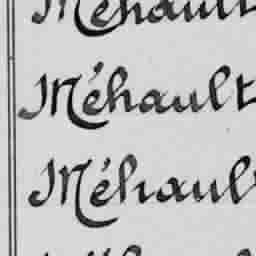 Méhault
Méhault
Méhault